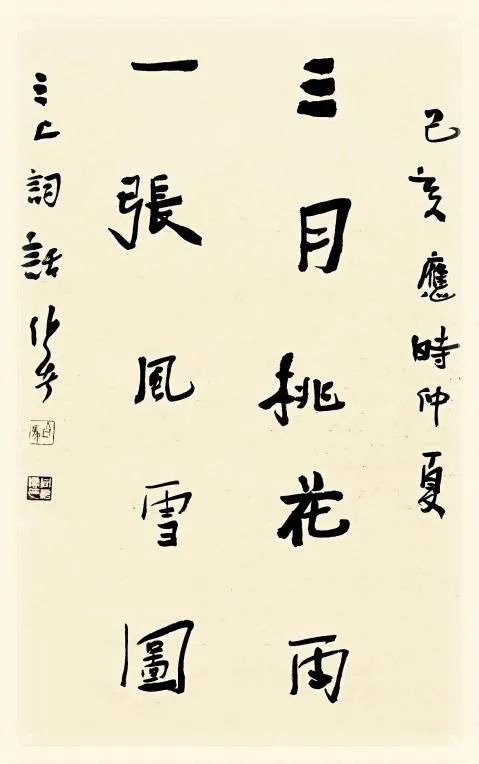 己亥應時仲夏
三月桃花雨
一張風雪圖
三上詞話